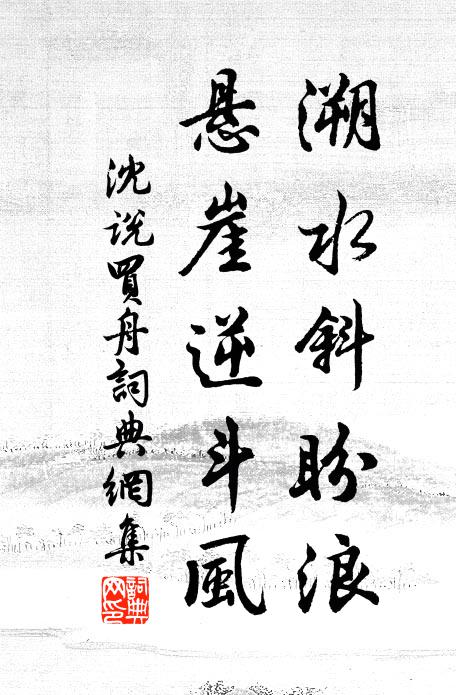 溯水斜盼浪
悬崖逆斗風
沈说買舟詞典網集
詞典网印